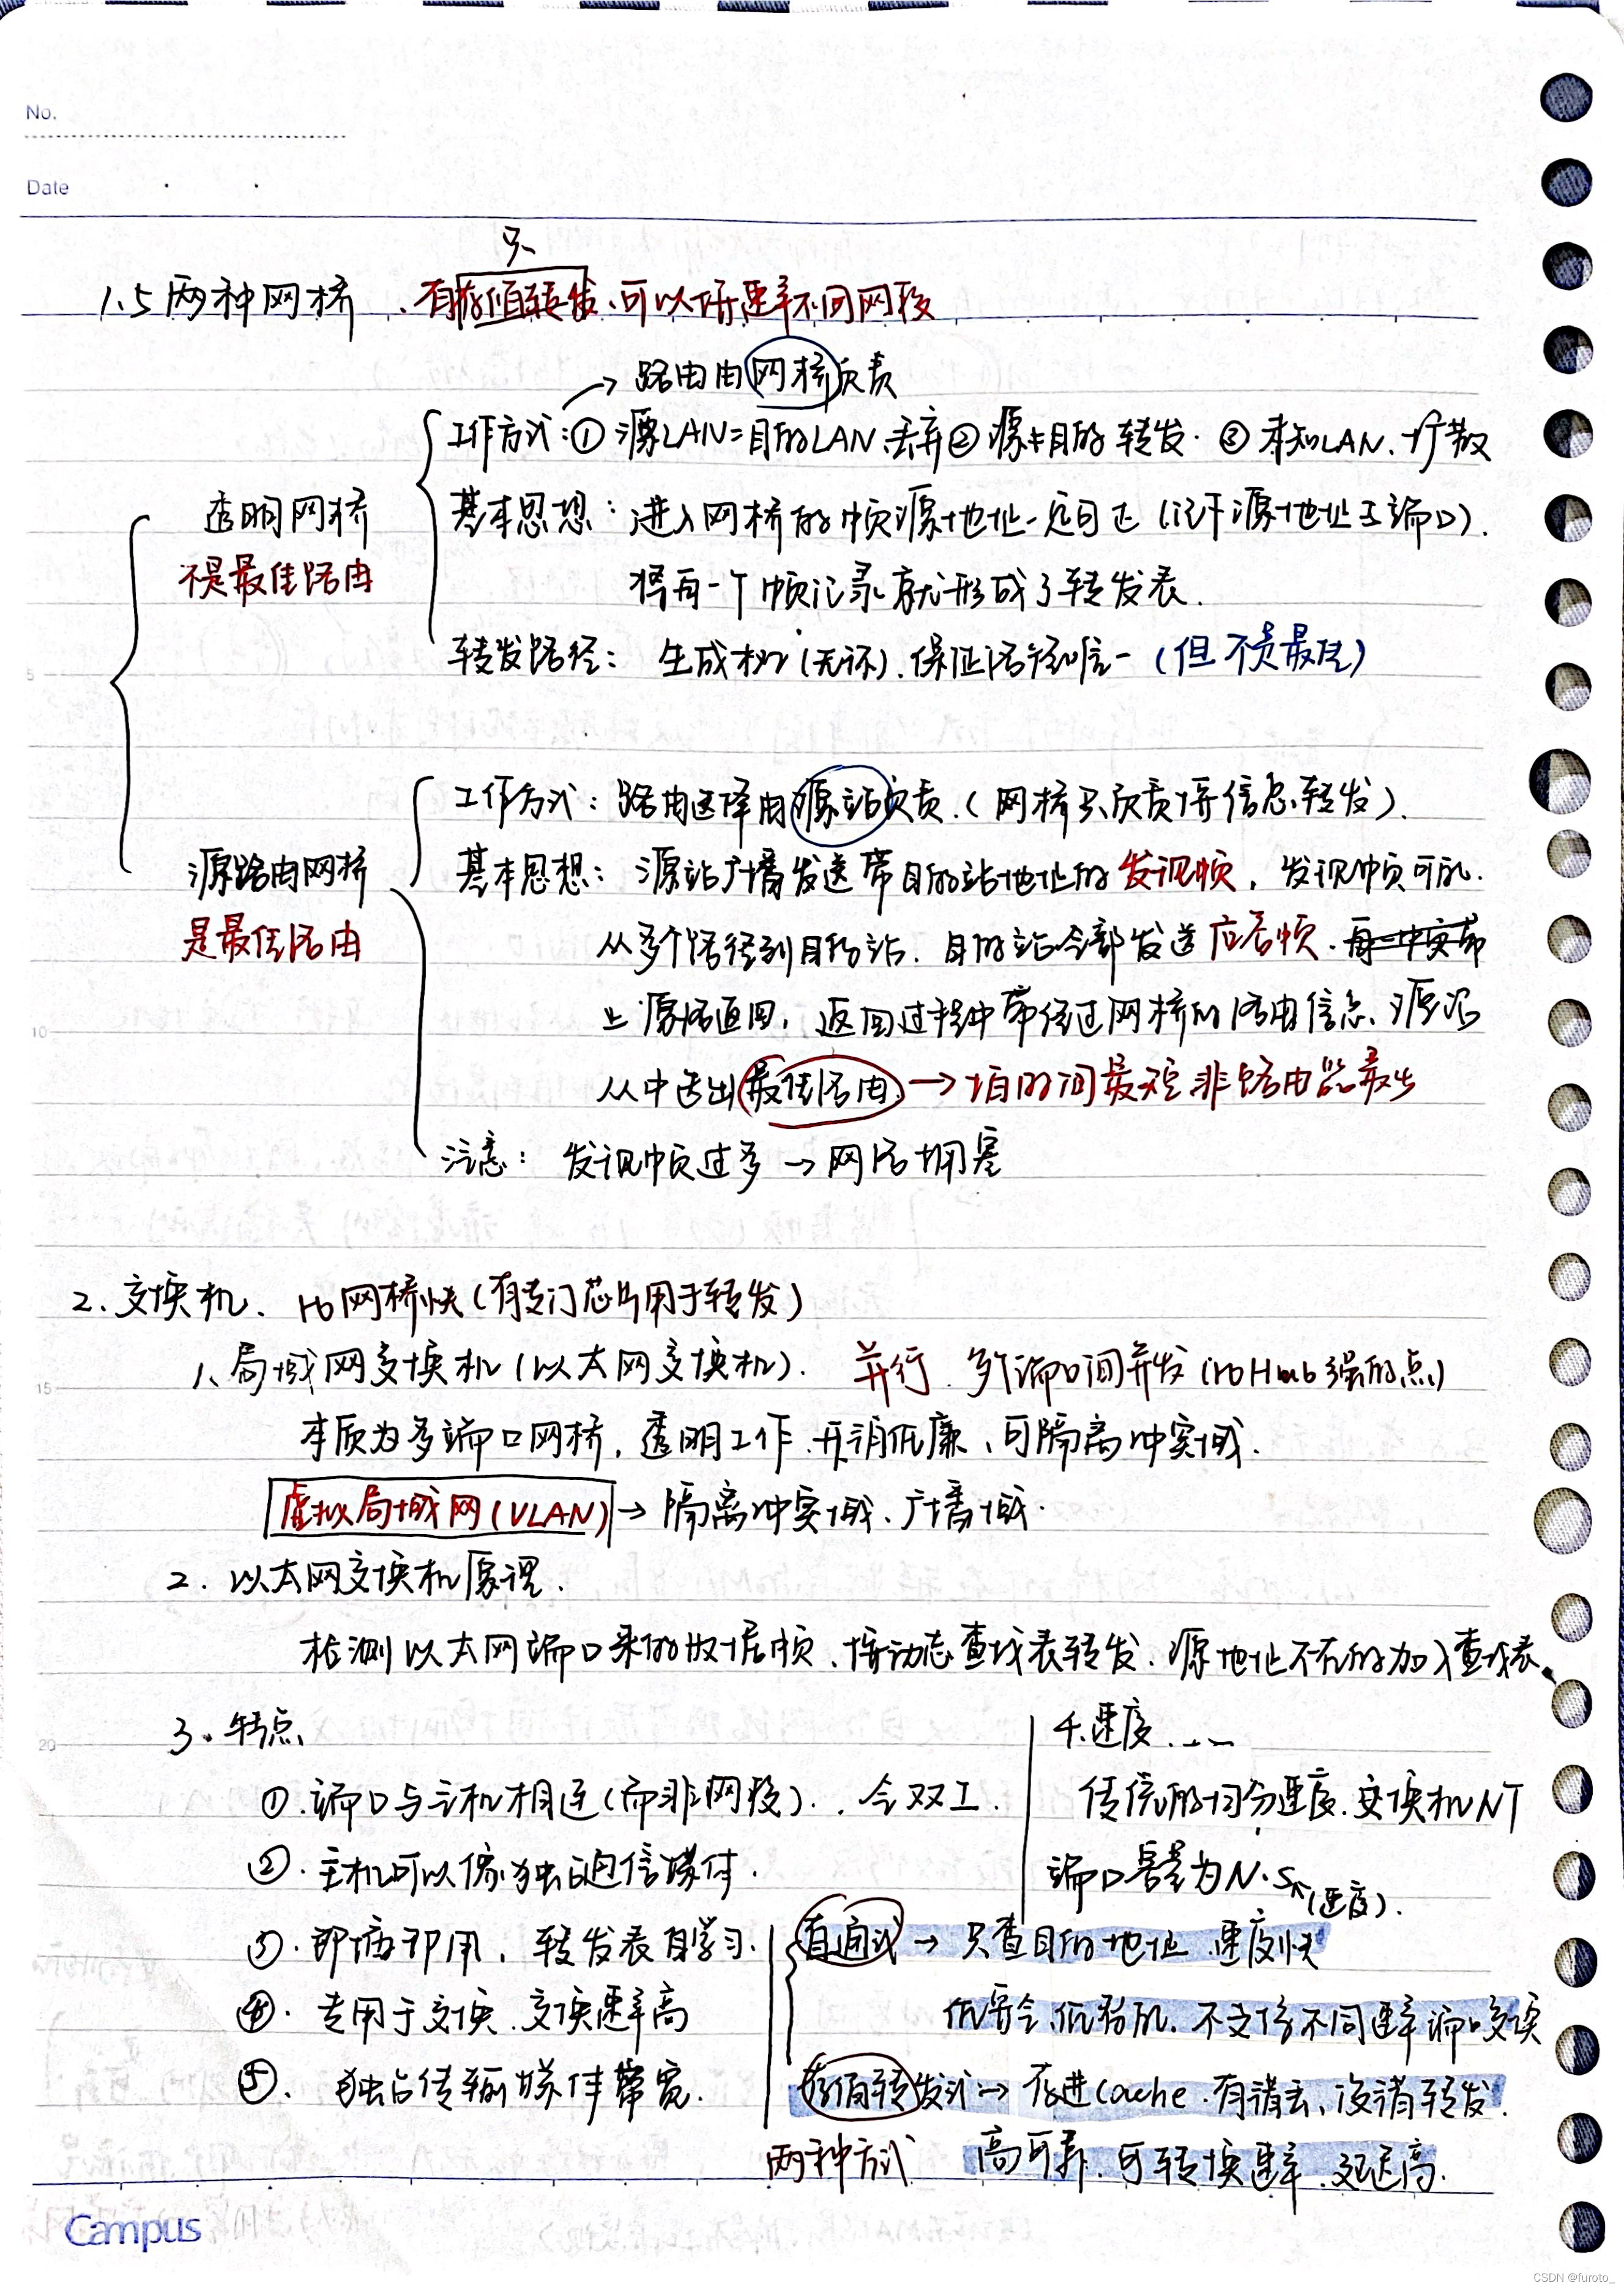 No.
Date
只
1.5 两种网桥 、有存储转发、可以接速率不同网段
→ 路由由网桥负责
工作方式:① 源LAN=目的LAN、丢弃 ② 源≠目的 转发. ③ 未知LAN、扩散
透明网桥
不是最佳路由
基本思想: 进入网桥的帧源地址一定可达 (记下源地址与端口).
将每一个帧记录就形成了转发表.
转发路径: 生成树 (无环). 保证路径唯一 (但不是最佳)
工作方式: 路由选择由源站负责. (网桥只负责接信息、转发).
源路由网桥
是最佳路由
基本思想: 源站广播发送带目的站地址的发现帧, 发现帧可能.
从多个路径到目的站. 目的站全部发送应答帧.
原路返回, 返回过程中带经过网桥的路由信息、源站
从中选出最佳路由. → 指时间最短非路由器最少
注意: 发现帧过多 → 网络拥塞
2. 交换机、 比网桥快 (有专门芯片用于转发)
1、局域网交换机 (以太网交换机). 并行. 多个端口间并发 (比Hub强的点)
本质为多端口网桥, 透明工作. 开销低廉、可隔离冲突域.
虚拟局域网 (VLAN) → 隔离冲突域、广播域.
2. 以太网交换机原理.
检测以太网端口来的数据帧、按动态查找表转发. 源地址不在的加入查找表、
3. 特点、
① 端口与主机相连 (而非网段). 、全双工.
②. 主机可以像独占通信媒体.
③. 即插即用, 转发表自学习.
④. 专用于交换、交换速率高
⑤、 独占传输媒体带宽.
4.速度. ……
传统的均分速度. 交换机N个
端口容量为N·S (速度).
直通式 → 只查目的地址 速度快
低安全、低智能、不支持不同速率端口交换
存储转发式 → 存进Cache. 有错丢、没错转发.
两种方式 高可靠、可转换速率、延迟高.
Campus
CSDN @furoto_